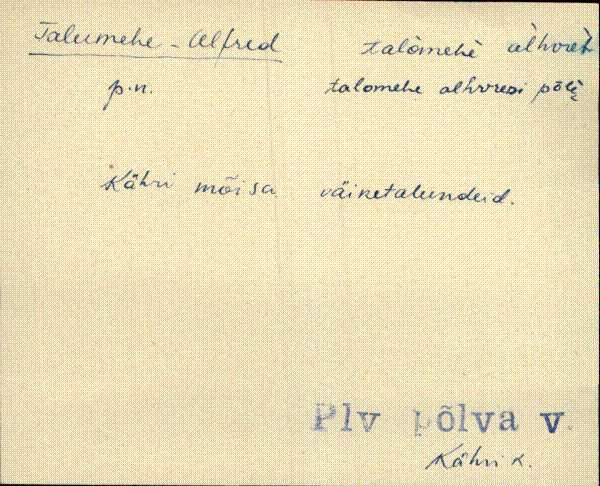 Talumehe-Alfred talòmehè àlhvret
p.n. talomehe alhvredi põlè
Kähri mõisa väiketalundeid.
Plv põlva v.
Kähri k.